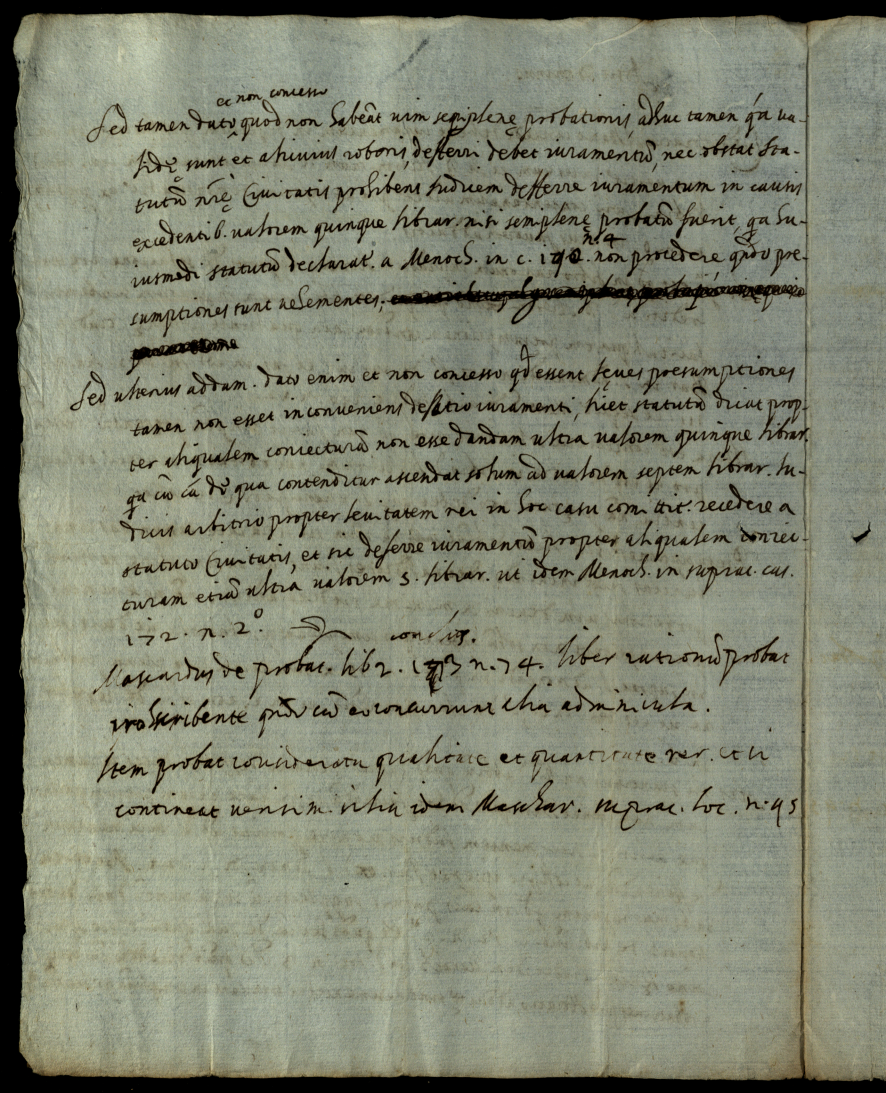 et non concesso
Sed tamen dato quod non habeāt uim semiplenę probationis adhuc tamen q́a ua-
lidę sunt et alicuius roboris, deferri debet iuramentū, nec obstat sta-
tutū nr̄ę Ciuitatis prohibens Iudicem defferre iuramentum in causis
excedentib. valorem quinque librar. nisi semiplenę probatū fuerit, qa hu-
iusmedi statutū declarat. a Menoch. in c. 190. n. 4 non procedere qn̄do pre-
sumptiones sunt uehementes,
Sed ulterius addam. dato enim et non concesso qd essent lęues presumptiones
tamen non esset inconueniens delatio iuramenti, licet statutū dicat prop-
ter aliqualem coniecturā non esse dandam ultra valorem quinque librar.
qa cū cā de qua contenditur ascendat solum ad valorem septem librar. Iu-
dicis arbitrio propter leuitatem rei in hoc casu comittit. recedere a
statuto Ciuitatis, et sic deferre iuramentū propter aliqualem coniec-
turam etiā ultra valorem 5. librar. ut idem Menoch. in suprac. cas.
172. n. 2º.
conclus.
Mascardus de probat. lib 2. n. 74. liber rationū probat
pro scribente qn̄do cū eo concurrunt alia adminicula.
Item probat considerata qualitate et quantitate rer. et si
contineat uerisimilia idem Maschar. suprac. loc. n. 95